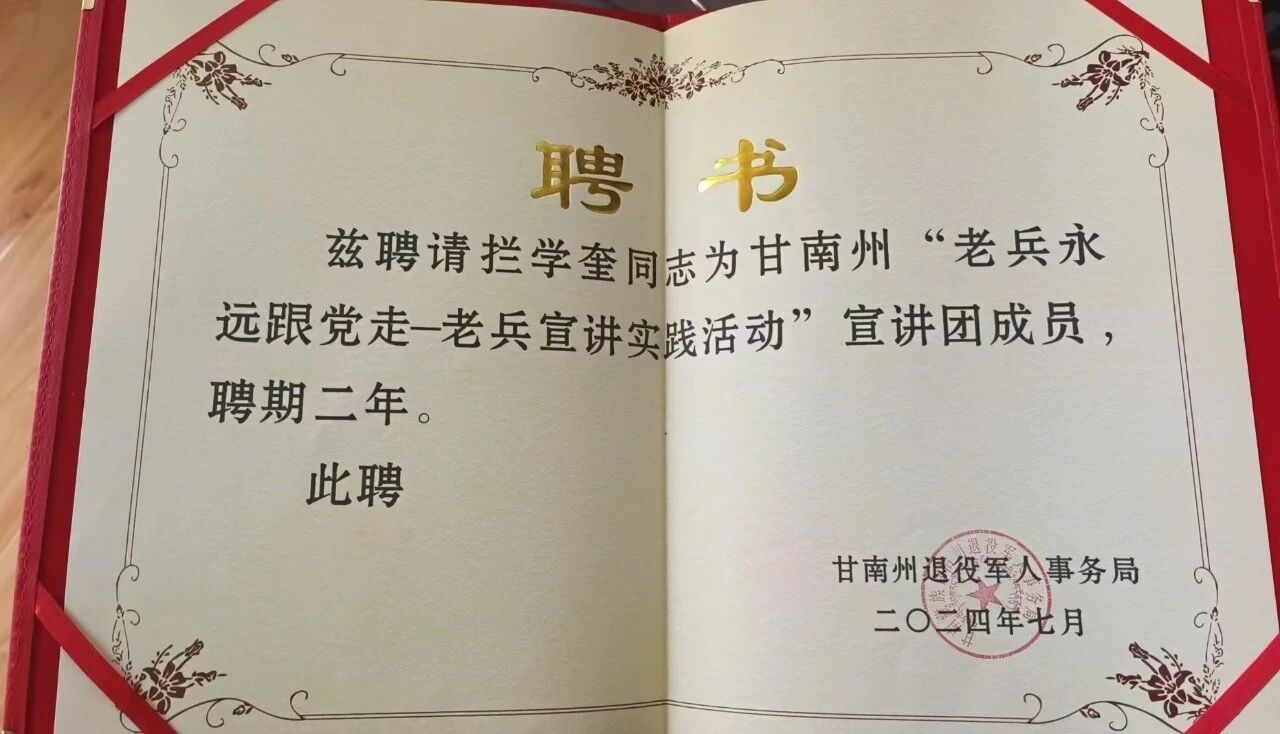 聘书
兹聘请拦学奎同志为甘南州“老兵永
远跟党走—老兵宣讲实践活动”宣讲团成员，
聘期二年。
此聘
甘南州退役军人事务局
二〇二四年七月